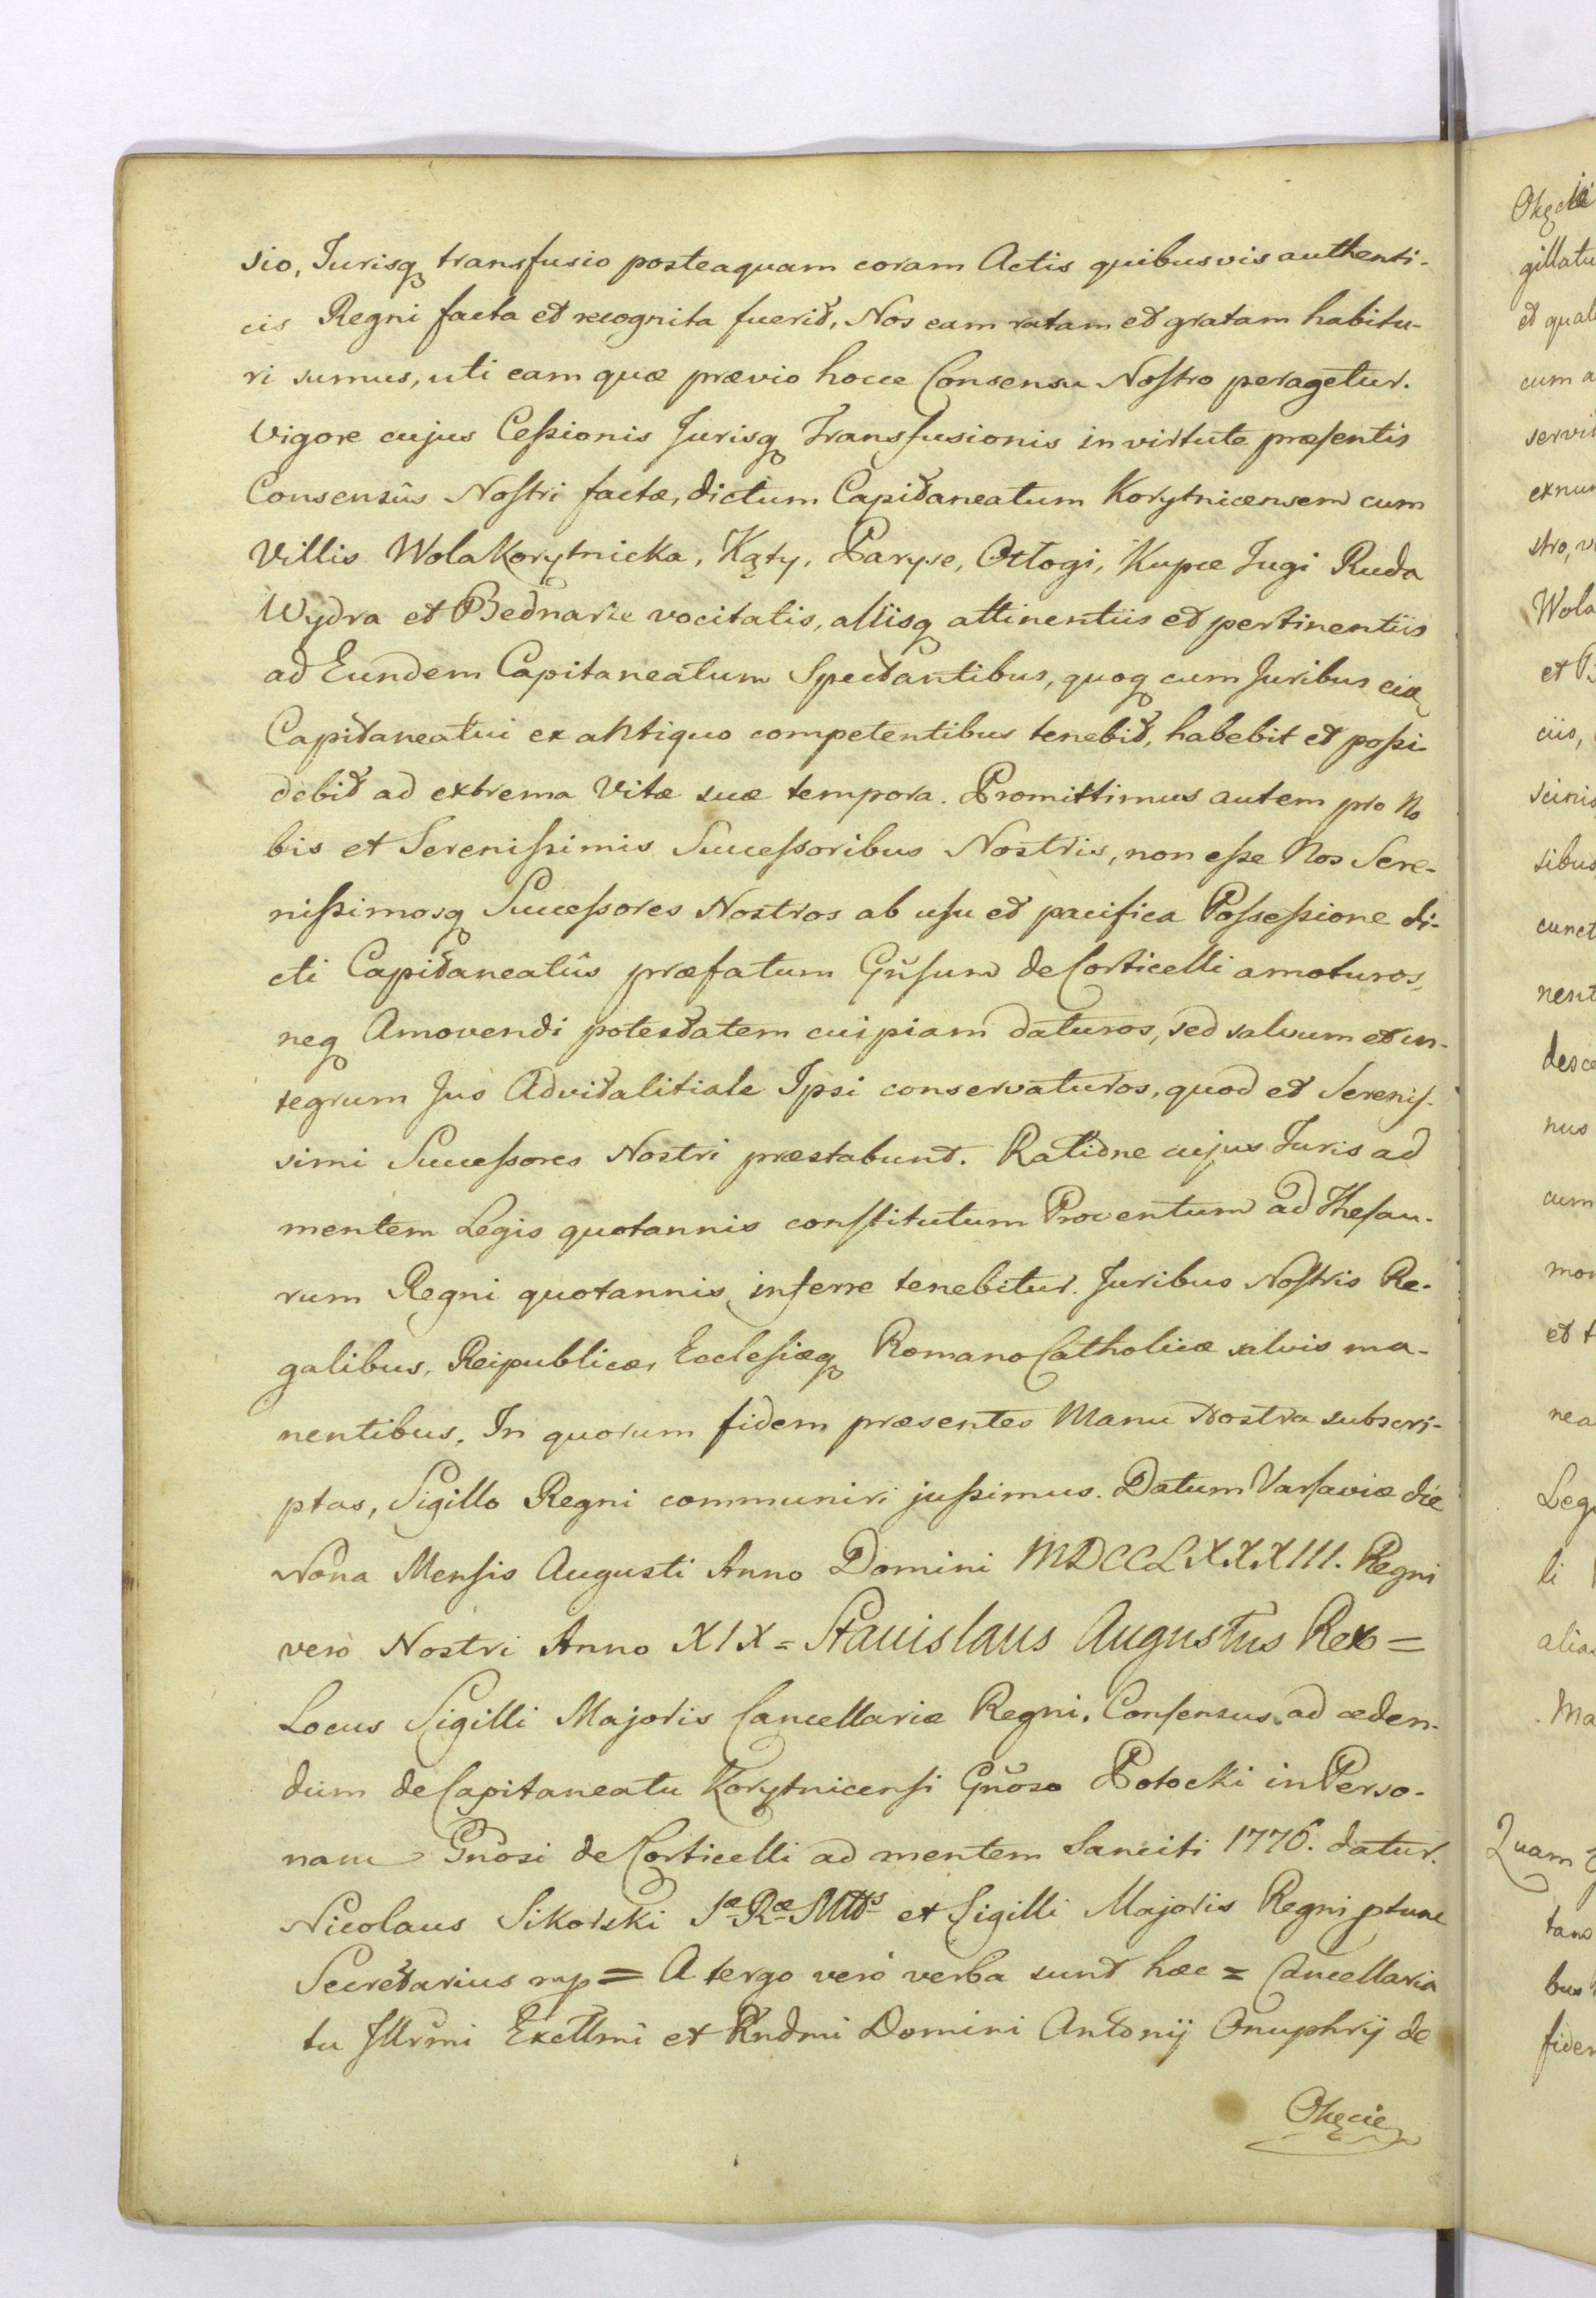 sio, Jurisq transfusio posteaquam coram Actis quibusvis authenti-
cis Regni facta et recognita fuerit, Nos eam ratam et gratam habitu-
ri sumus, uti eam quæ prævio hocce Consensu Nostro peragetur.
Vigore cujus Cessionis Jurisq Transfusionis in virtute præsentis
Consensûs Nostri factæ, dictum Capitaneatum Korytnicensem cum
Villis Wola Korytnicka, Kąty, Paryse, Otłogi, Kupce Jugi Ruda
Wydra et Bednarze vocitatis, aliisq attinentiis et pertinentiis
ad Eundem Capitaneatum Spectantibus, quoq cum Juribus
Capitaneatui ex antiquo competentibus tenebit, habebit et possi
debit ad extrema Vitæ suæ tempora. Promittimus autem pro No
bis et Serenissimis Successoribus Nostris, non esse Nos Sere-
nissimosq Successores Nostros ab usu et pacifica Possessione di-
cti Capitaneatûs præfatum Gñsum de Corticelli amoturos,
neq Amovendi potestatem cuipiam daturos, sed salvum et in-
tegrum Jus Advitalitiale Ipsi conservaturos, quod et Serenis-
simi Successores Nostri præstabunt. Ratione cujus Juris ad
mentem Legis quotannis constitutum Proventum ad Thesau-
rum Regni quotannis inferre tenebitur. Juribus Nostris Re-
galibus, Reipublicæ, Ecclesiæq Romano Catholicæ salvis ma-
nentibus. In quorum fidem præsentes Manu Nostra subscri-
ptas, Sigillo Regni communiri jussimus. Datum Varsaviæ die
Nona Mensis Augusti Anno Domini MDCCLXXXIII. Regni
vero Nostri Anno XIX = Stanislaus Augustus Rex =
Locus Sigilli Majoris Cancellariæ Regni. Consensus ad ceden-
dum de Capitaneatu Korytnicensi Gñoso Potocki in Perso-
nam Gñosi de Corticelli ad mentem Sanciti 1776. datur.
Nicolaus Sikorski Sæ Ræ Mttis et Sigilli Majoris Regni ptunc
Secretarius mp = A tergo verò verba sunt hæc = Cancellaria
tu Jllrmi Excllmi et Rndmi Domini Antonij Onuphrij de
Okęcie
Okęcie
gillatu
et qual
cum a
servit
exnun
stro, v
Wola
ciis,
scinis
sibus
cunct
nent
desce
nus
cum
mon
et t
nea
Leg
li
alias
Ma
Quam
tam
bus
fidem